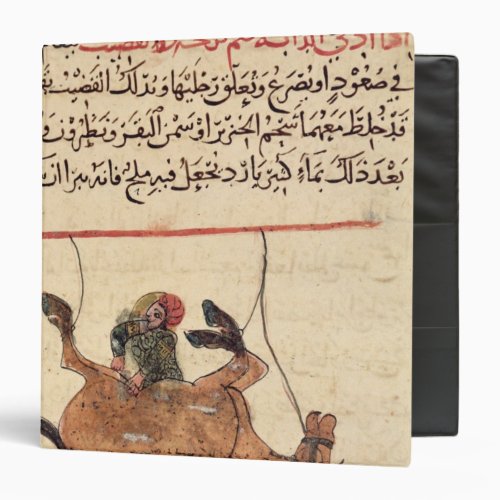 في صعود او تصرع وتعلق رجليها ويدلك القضيب
قد خلط معهما شحم الخنزير او سمن البقر ونطرون و
بعد ذلك بماء كثير بارد يجعل فيه ملح فانه يبرا ان